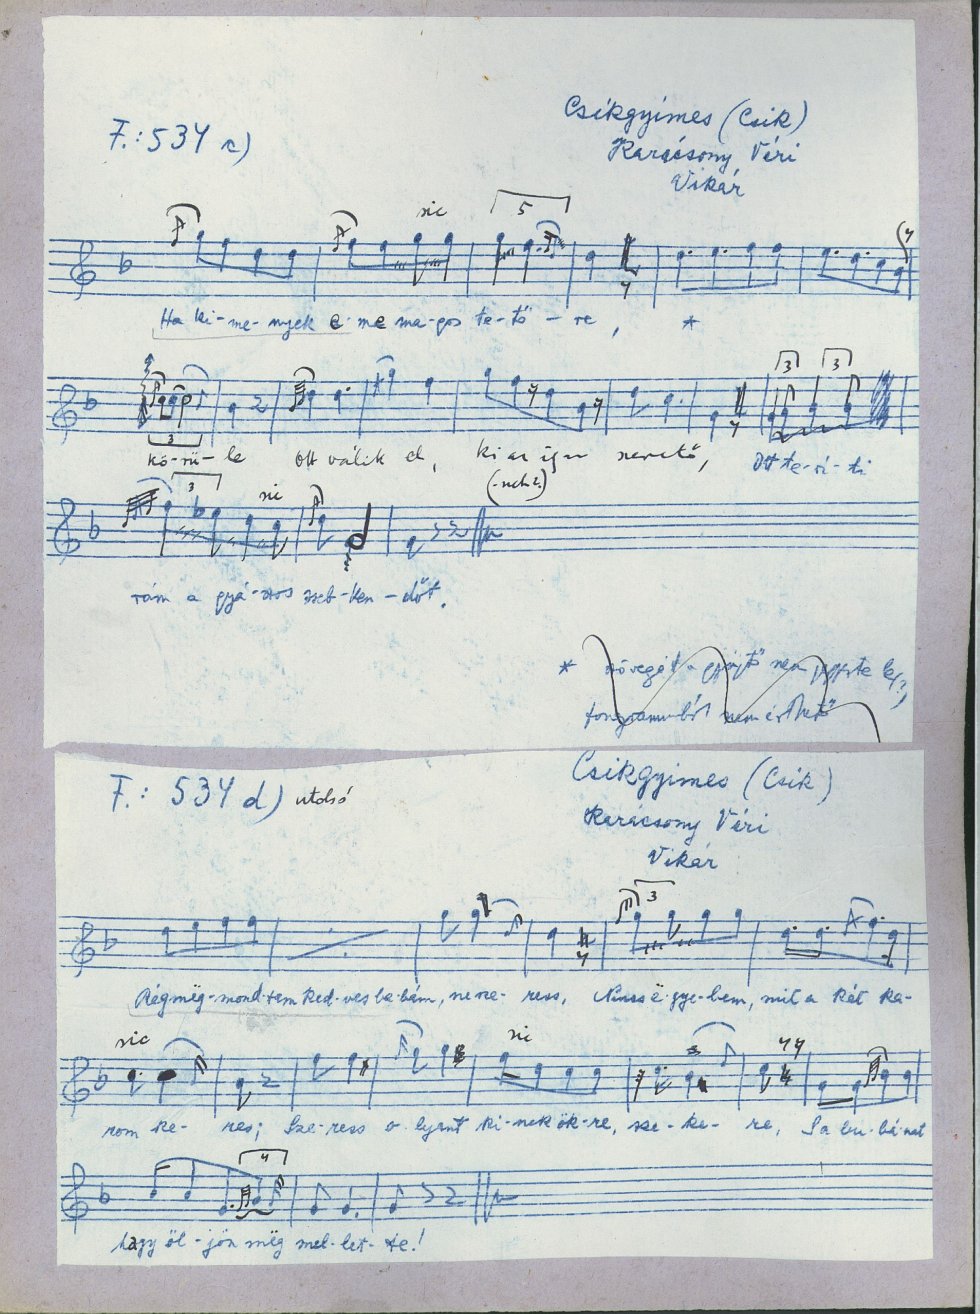 F.: 534 c)
Csíkgyimes (Csik)
Karácsony Véri
Vikár
sic
5
Ha ki-me-nyek e me ma-gos te-tő-re, *
3 3
3
kö-rü-le Ott válik el, ki az igaz szerető, Ott te-ri-ti
(-nek?)
3 sic
rám a gyá-szos zseb-ken-dőt.
* szövegét gyűjtő nem jegyezte le(?),
fonogramból nem érthető
F.: 534 d) utolsó
Csikgyimes (Csik)
Karácsony Véri
Vikár
3
Rég még-mond-tam ked-ves ba-bám, ne ne-ress, Nincs e-gye-bem, mit a két ka-
sic sic
rom ke-res; Sze-ress o-lyant ki-nek ök-re, sze-ke-re, S a bu-bá-nat
4
hagy öl-jön még mel-let-te!